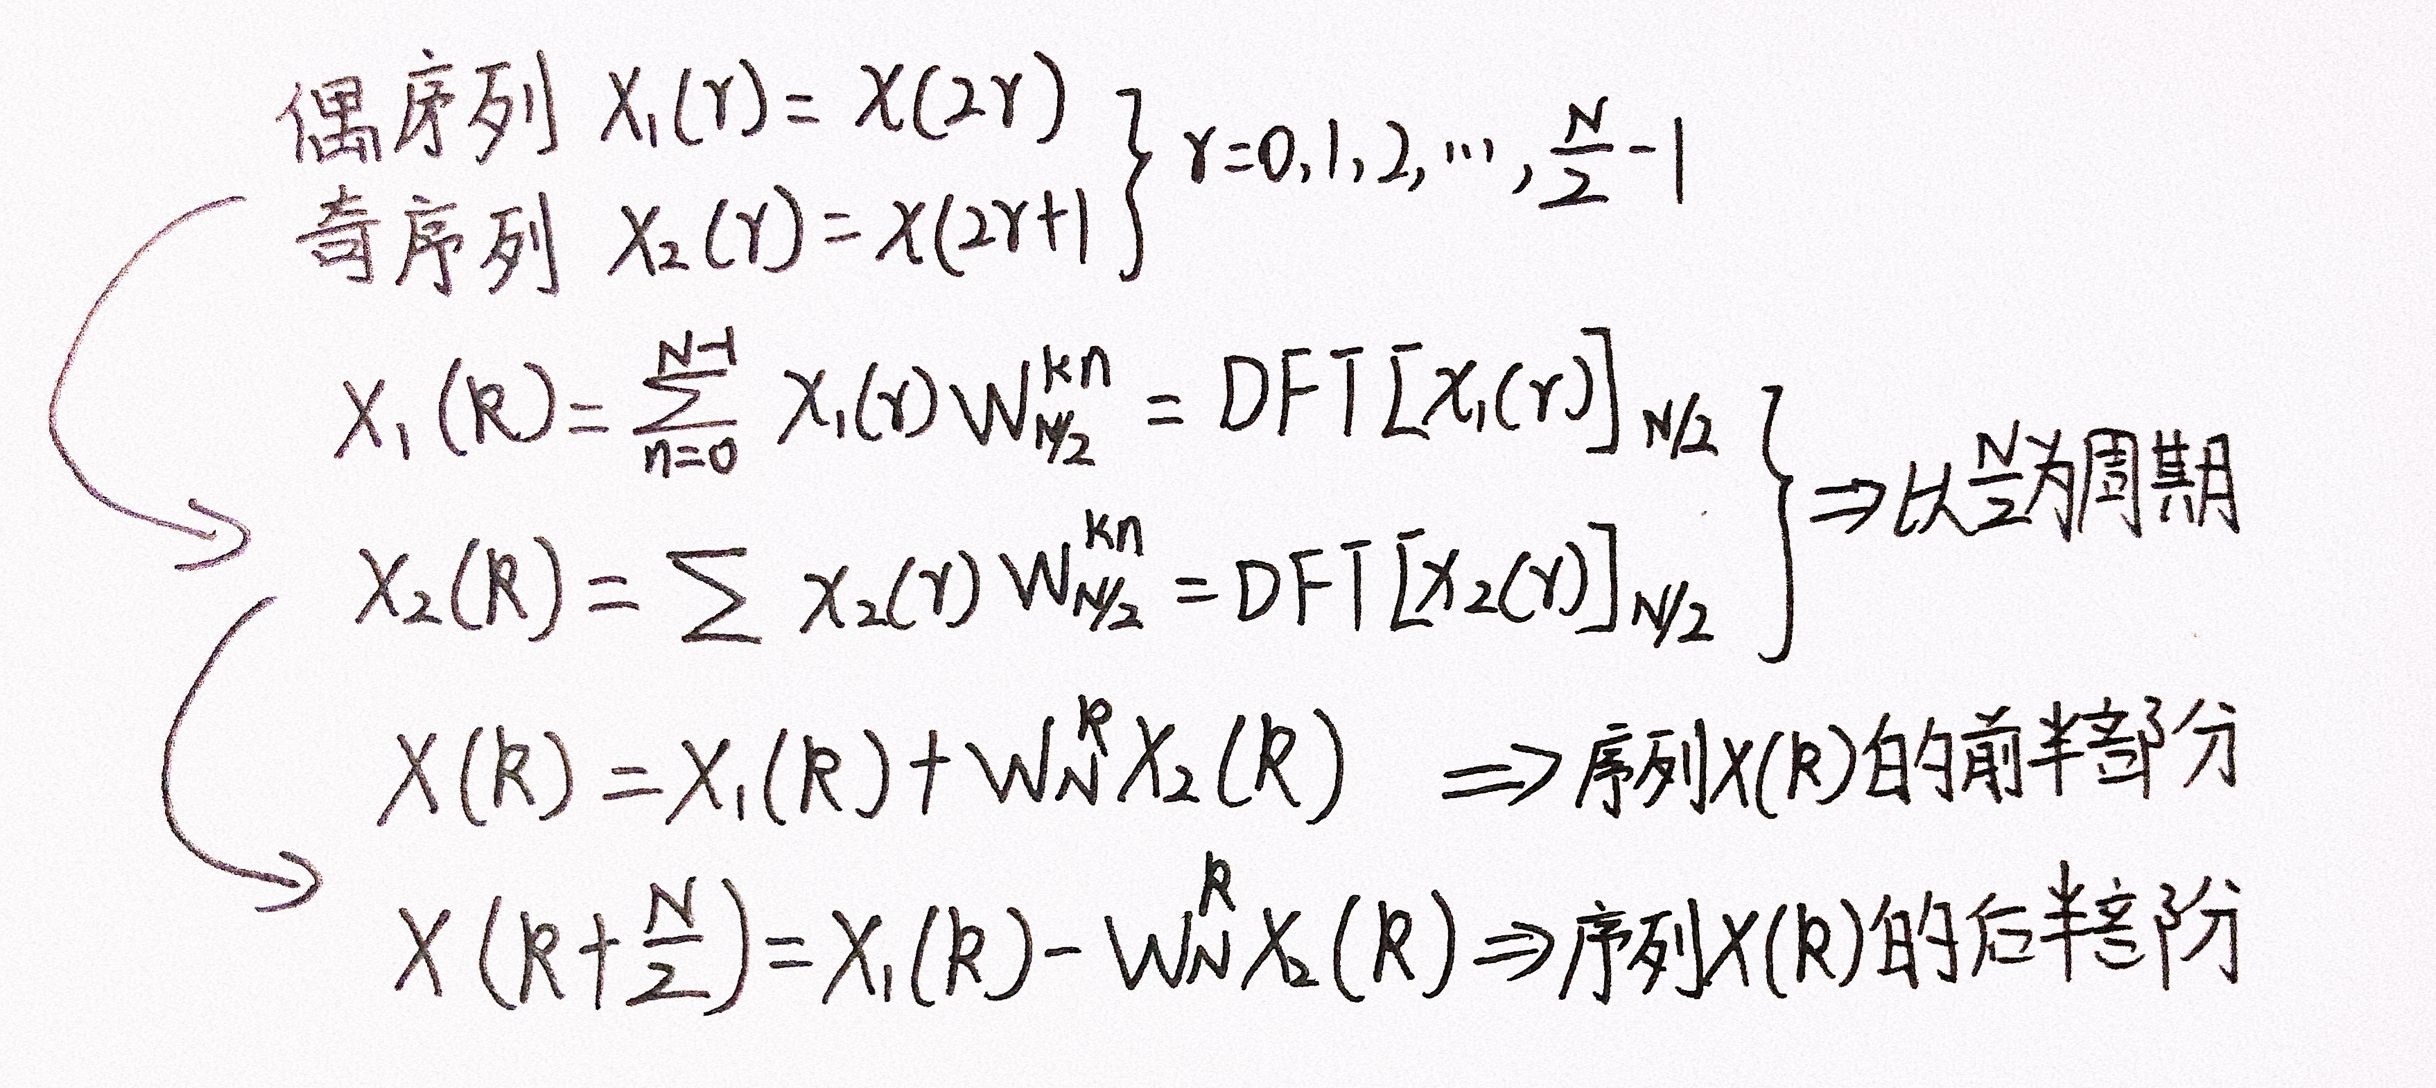 偶序列 x₁(r)=x(2r)
奇序列 x₂(r)=x(2r+1
} r=0,1,2,…,N/2-1
X₁(k)=∑_{n=0}^{N-1} x₁(r)W_{N/2}^{kn}=DFT[x₁(r)]_{N/2}
X₂(k)=∑ x₂(r)W_{N/2}^{kn}=DFT[x₂(r)]_{N/2}
} ⇒以N/2为周期
X(k)=X₁(k)+W_N^k X₂(k) ⇒序列X(k)的前半部分
X(k+N/2)=X₁(k)-W_N^k X₂(k)⇒序列X(k)的后半部分